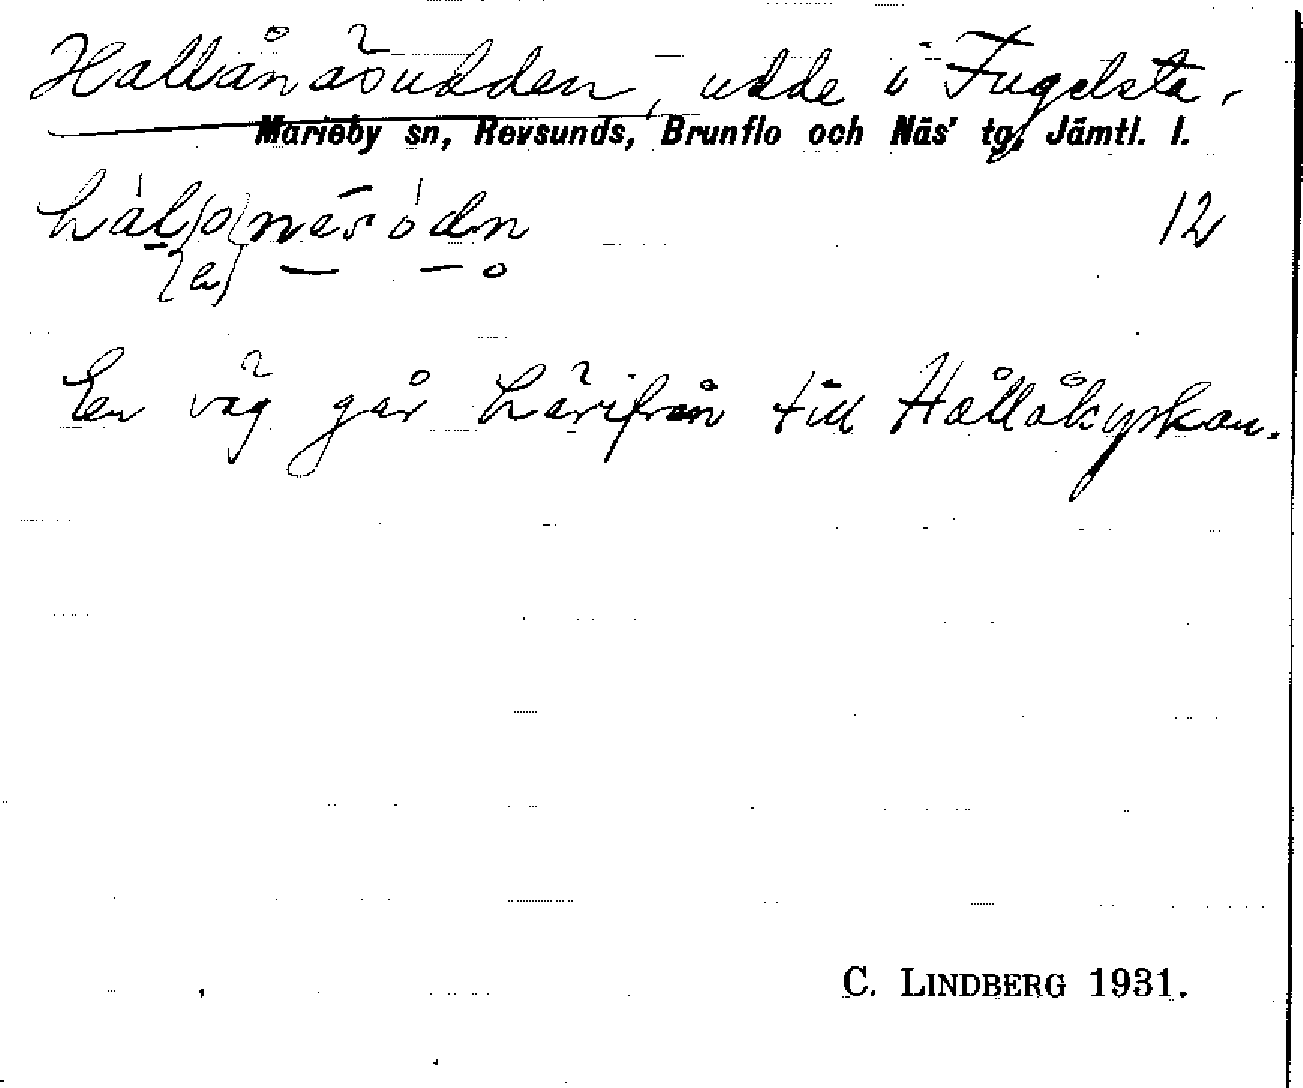 Hallånäsudden, udde i Fugelsta.
Marieby sn, Revsunds, Brunflo och Näs' tg, Jämtl. l.
12
En väg går härifrån till Hållåkyrkan.
C. LINDBERG 1931.